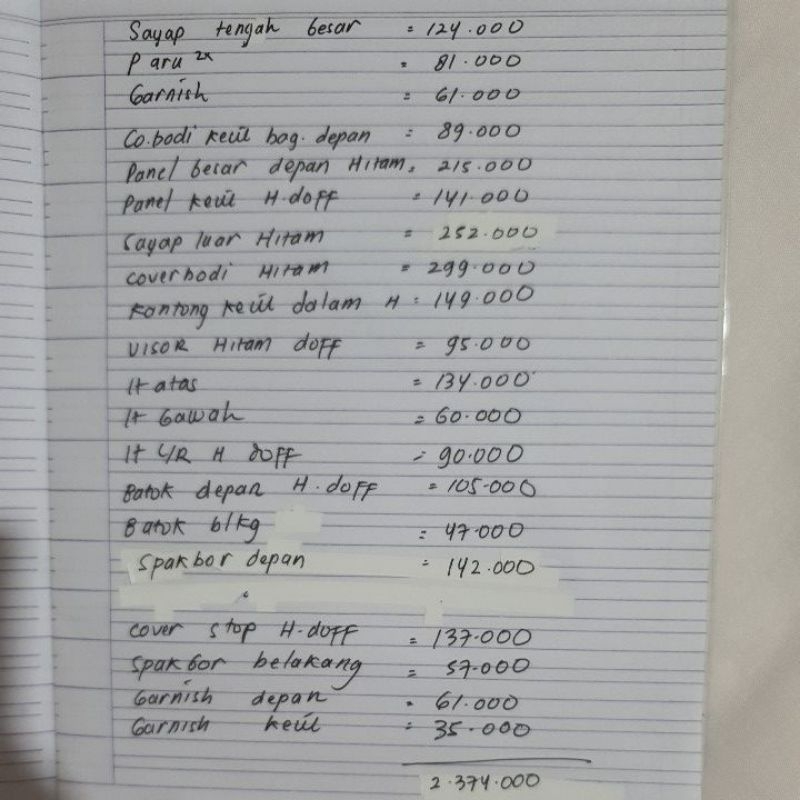 Sayap tengah besar = 124.000
Paru 2x = 81.000
Garnish = 61.000
Co.bodi kecil bag. depan = 89.000
Panel besar depan Hitam = 215.000
Panel kecil H.doff = 141.000
Sayap luar Hitam = 252.000
coverbodi Hitam = 299.000
Kantong kecil dalam H = 149.000
VISOR Hitam doff = 95.000
lt atas = 134.000
lt bawah = 60.000
lt L/R H doff = 90.000
Batok depan H.doff = 105.000
Batok blkg = 47.000
Spakbor depan = 142.000
cover stop H-doff = 137.000
Spakbor belakang = 57.000
Garnish depan = 61.000
Garnish kecil = 35.000
2.374.000